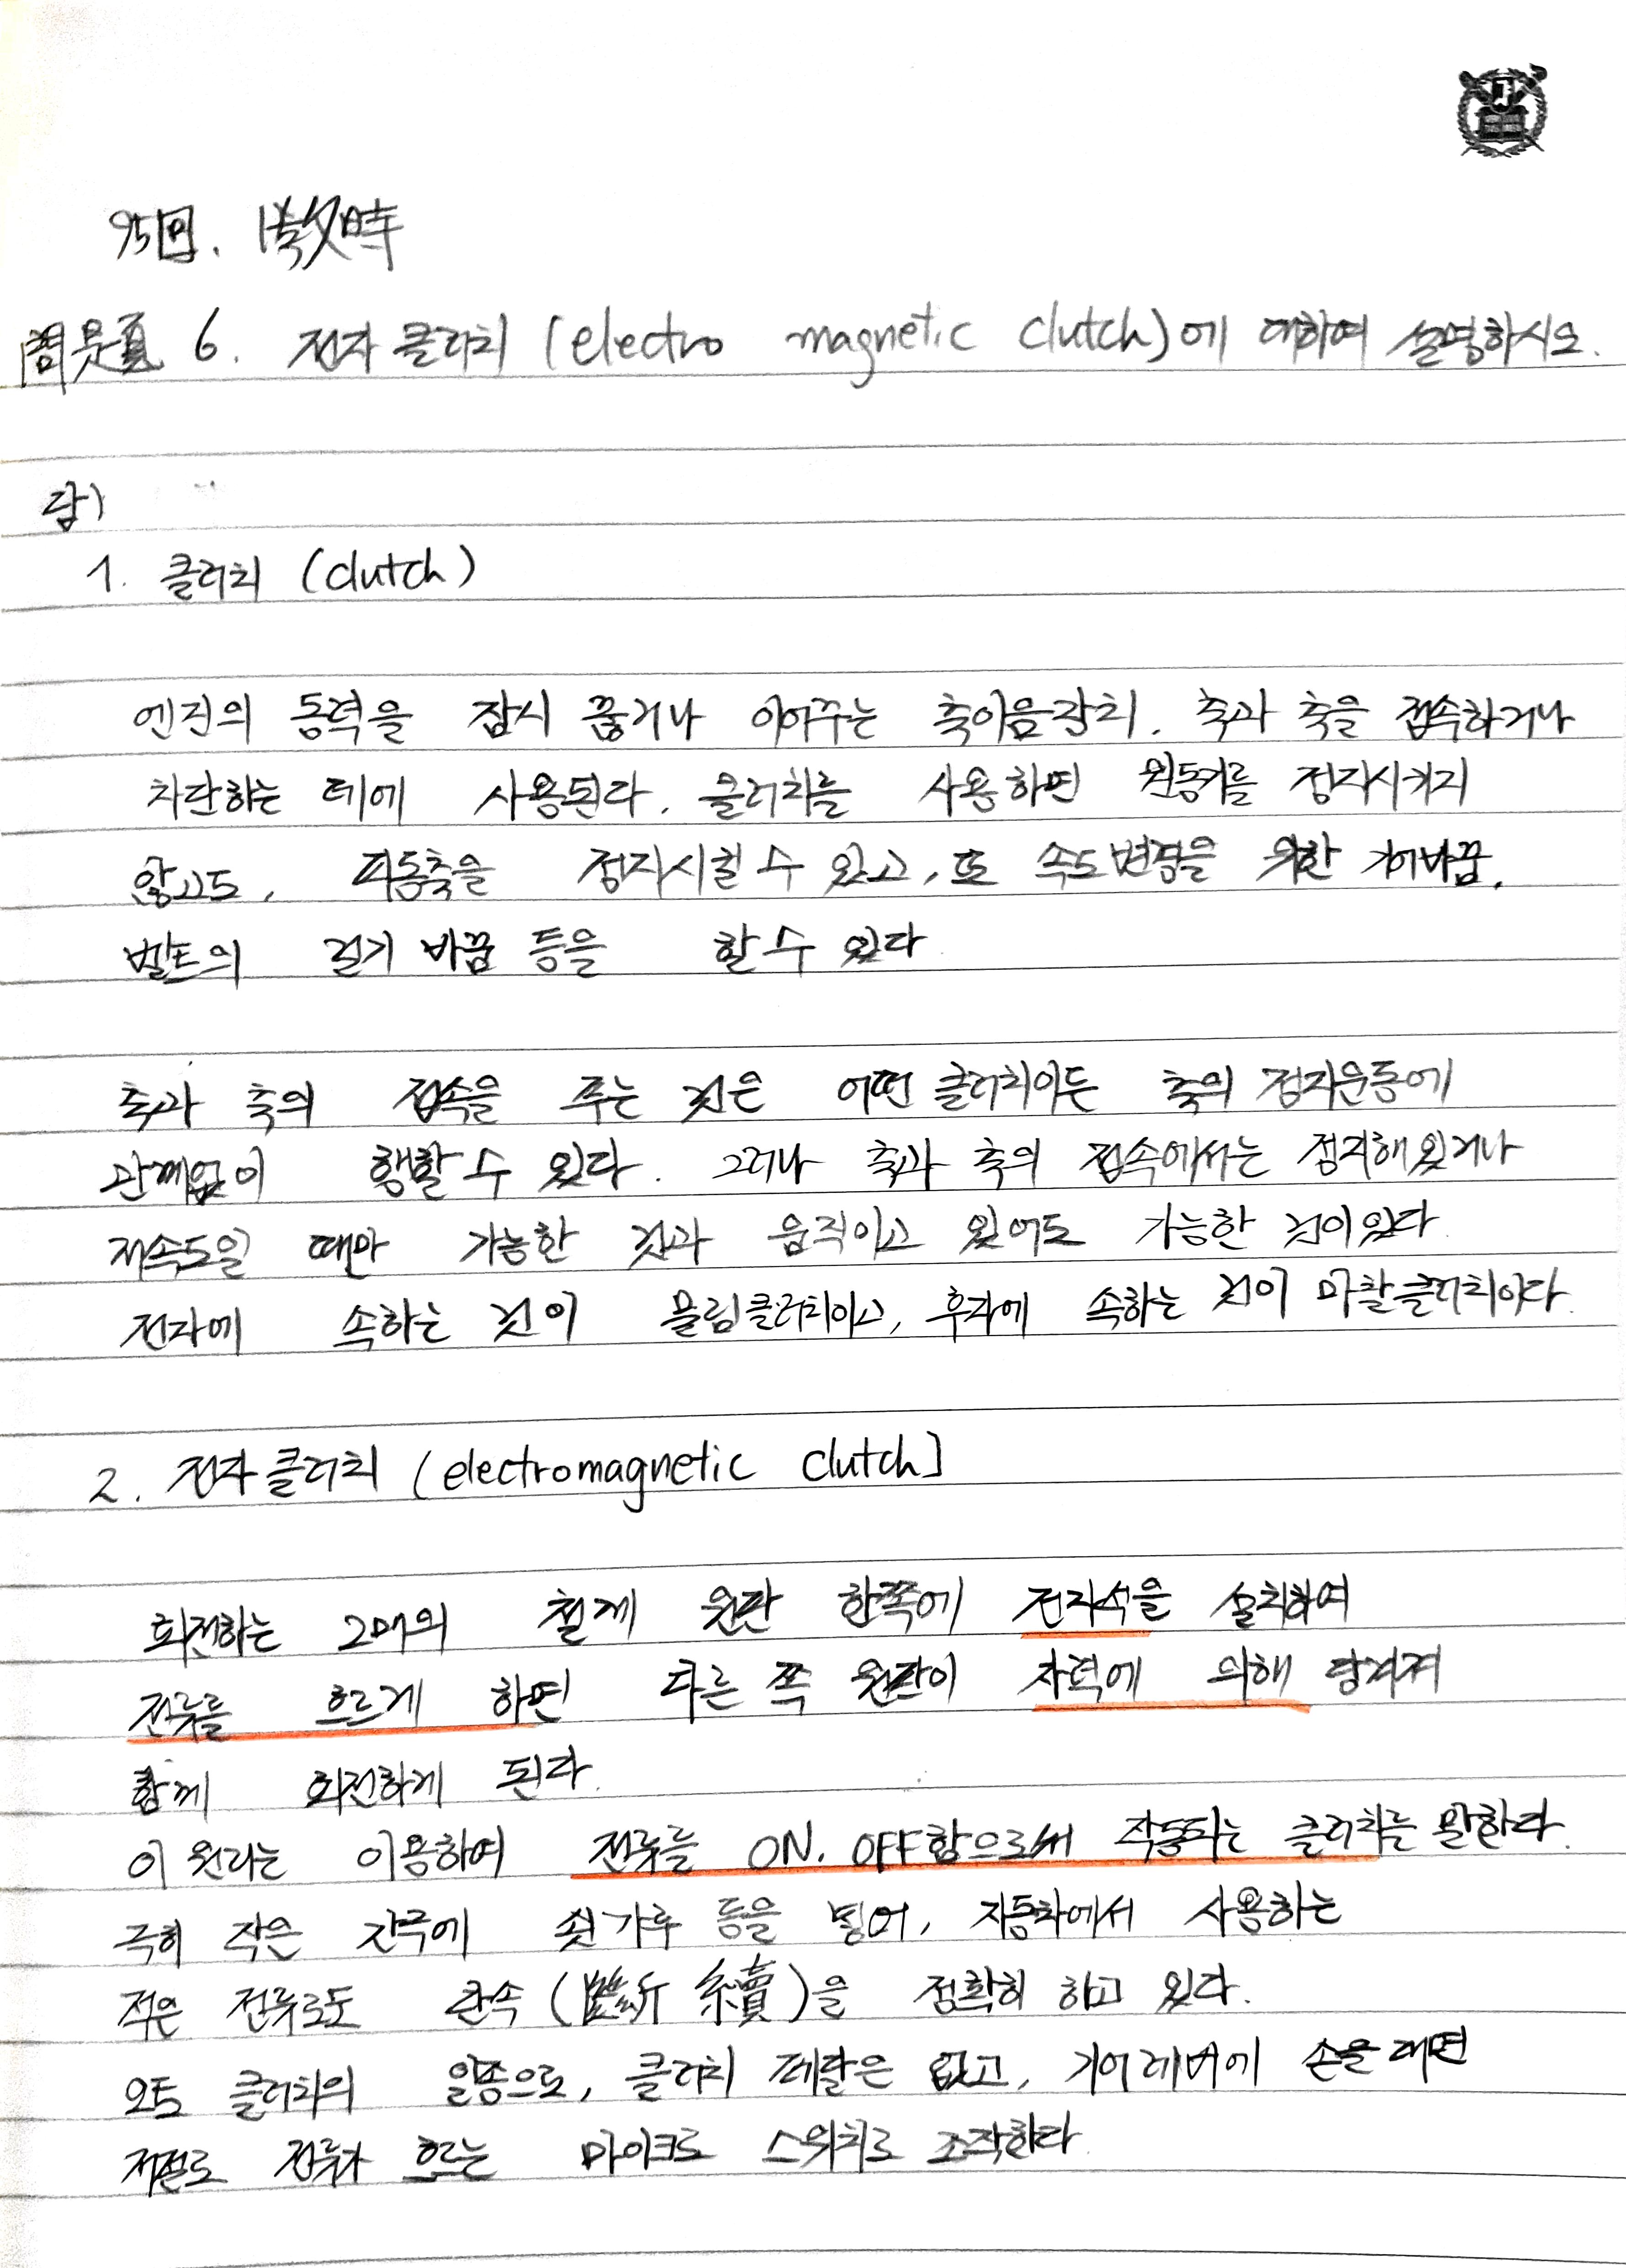 95回. 1敎時
問題 6. 전자 클러치 (electro magnetic clutch)에 대하여 설명하시오.
답)
1. 클러치 (clutch)
엔진의 동력을 잠시 끊거나 이어주는 축이음장치. 축과 축을 접속하거나
차단하는 데에 사용된다. 클러치를 사용하면 원동기를 정지시키지
않고도, 피동축을 정지시킬 수 있고, 또 속도변경을 위한 기어바꿈,
벨트의 걸기 바꿈 등을 할 수 있다.
축과 축의 접속을 푸는 것은 어떤 클러치이든 축의 정지운동에
관계없이 행할 수 있다. 그러나 축과 축의 접속에서는 정지해 있거나
저속도일 때만 가능한 것과 움직이고 있어도 가능한 것이 있다.
전자에 속하는 것이 물림클러치이고, 후자에 속하는 것이 마찰클러치이다.
2. 전자 클러치 (electromagnetic clutch]
회전하는 2매의 철제 원판 한쪽에 전자석을 설치하여
전류를 흐르게 하면 다른 쪽 원판이 자력에 의해 당겨져
함께 회전하게 된다.
이 원리는 이용하여 전류를 ON. OFF함으로써 작동되는 클러치를 말한다.
극히 작은 간극에 쇳가루 등을 넣어, 자동차에서 사용하는
적은 전류로도 단속(斷續)을 정확히 하고 있다.
오토 클러치의 일종으로, 클러치 페달은 없고, 기어레버에 손을 대면
저절로 전류가 흐르는 마이크로 스위치로 조작한다.